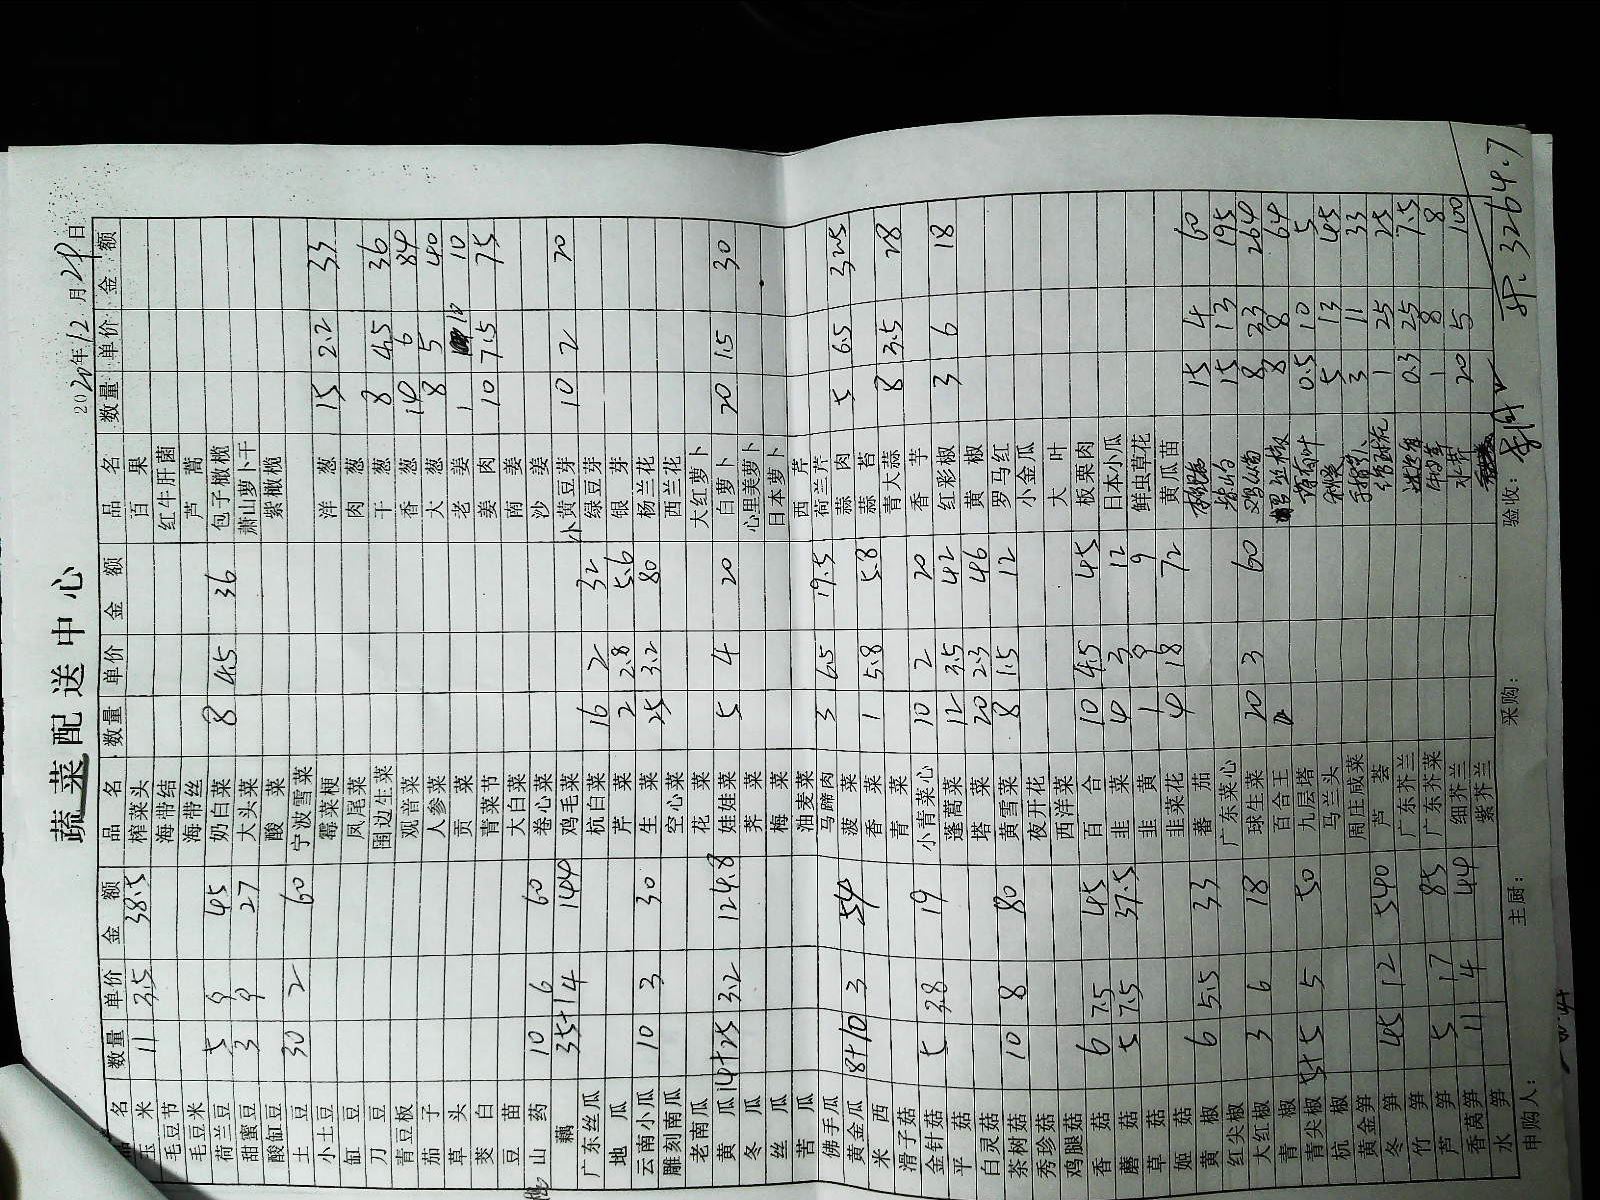 蔬菜配送中心
2020年12月 日
品名 数量 单价 金额 品名 数量 单价 金额 品名 数量 单价 金额
玉米 11 3.5 38.5 榨菜头 百果
毛豆节 海带结 红牛肝菌
毛豆米 海带丝 芦蒿
荷兰豆 5 9 45 奶白菜 8 4.5 36 包子橄榄
甜蜜豆 3 9 27 大头菜 萧山萝卜干
酸缸豆 酸菜 紫橄榄
土豆 30 2 60 宁波雪菜
小土豆 霉菜梗 洋葱 15 2.2 33
缸豆 凤尾菜 肉葱
刀豆 围边生菜 干葱 8 4.5 36
青豆板 观音菜 香葱 14 6 84
茄子 人参菜 大葱 8 5 40
草头 贡菜 老姜 1 10 10
茭白 青菜节 姜肉 10 7.5 75
豆苗 大白菜 南姜
山药 10 6 60 卷心菜 沙姜
藕 35+1 4 144 鸡毛菜 小黄豆芽 10 2 20
广东丝瓜 杭白菜 16 2 32 绿豆芽
地瓜 芹菜 2 2.8 5.6 银芽
云南小瓜 10 3 30 生菜 25 3.2 80 杨兰花
雕刻南瓜 空心菜 西兰花
老南瓜 花菜 大红萝卜
黄瓜 14+25 3.2 124.8 娃娃菜 5 4 20 白萝卜 20 1.5 30
冬瓜 荠菜 心里美萝卜
丝瓜 梅菜 日本萝卜
苦瓜 油麦菜 西芹
佛手瓜 马蹄肉 3 6.5 19.5 荷兰芹
黄金瓜 8+10 3 54 菠菜 蒜肉 5 6.5 32.5
米西 香菜 1 5.8 5.8 蒜苔
滑子菇 青菜 青大蒜 8 3.5 28
金针菇 5 3.8 19 小青菜心 10 2 20 香芋
平菇 蓬蒿菜 12 3.5 42 红彩椒 3 6 18
白灵菇 塔菜 20 2.3 46 黄椒
茶树菇 10 8 80 黄雪菜 8 1.5 12 罗马红
秀珍菇 夜开花 小金瓜
鸡腿菇 西洋菜 大叶
香菇 6 7.5 45 百合 10 4.5 45 板栗肉
蘑菇 5 7.5 37.5 韭菜 4 3 12 日本小瓜
草菇 韭黄 1 9 9 鲜虫草花
姬菇 韭菜花 4 18 72 黄瓜苗
黄椒 6 5.5 33 蕃茄 15 4 60
红尖椒 广东菜心 15 13 195
大红椒 3 6 18 球生菜 20 3 60 8 33 264
青椒 百合王 8 8 64
青尖椒 5+5 5 50 九层塔 0.5 10 5
杭椒 马兰头 5 13
黄金笋 周庄咸菜 3 11 33
冬笋 45 12 540 芦荟 1 25 25
竹笋 广东芥兰 0.3 25 7.5
芦笋 5 17 85 广东芥菜 1 8 8
香莴笋 11 4 44 细芥兰 20 5 100
水笋 紫芥兰
申购人： 主厨： 采购： 验收： 3264.7